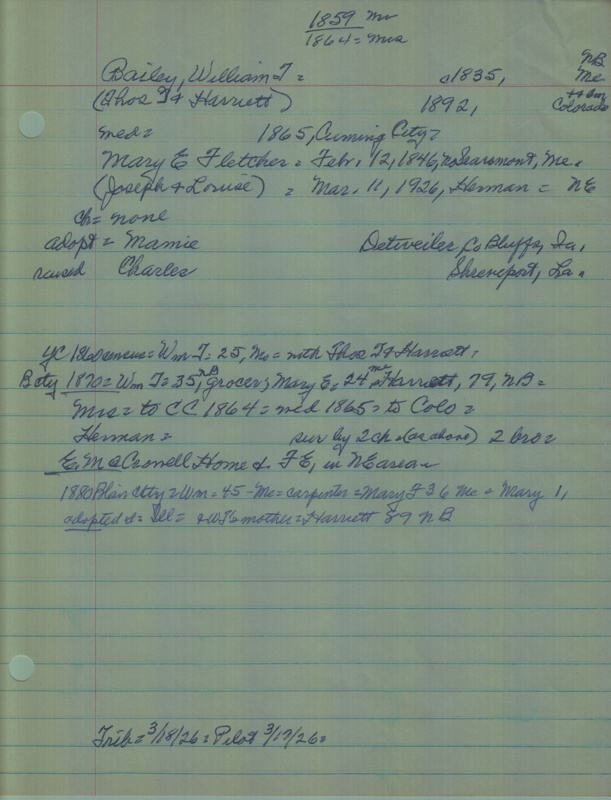 1859 Mr
1864 = Mrs
Bailey, William T = c1835, NB
(Thos T & Harriett) 1892, Me
Colorado
med = 1865, Cuming City =
Mary E Fletcher = Febr. 12, 1846, Searsmont, Me.
(Joseph & Louise) = Mar. 11, 1926, Herman = NE
ch = none
adopt = Mamie Detweiler, Co Bluffs, Ia.
raised Charles Shreveport, La.
1860 census = Wm T = 25, Me = with Thos T & Harriett =
B cty 1870 = Wm T = 35, NB, Grocer; Mary E, 24 Me, Harriett, 79, NB =
Mrs = to CC 1864 = med 1865 = to Colo =
Herman = sur by 2 ch (as above) 2 bro =
E. McCrowell Home & F E, in NE area
1880 Blair City = Wm = 45 - Me = carpenter = Mary F 36 Me = Mary 1,
adopted d = Ill = & Wm's mother = Harriett 89 NB
Trib = 3/18/26 = Pilot 3/17/26 =